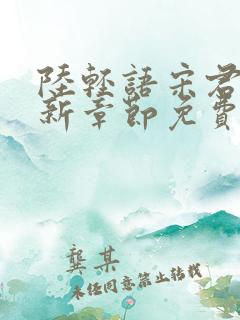 陸輕語宋君
新章節免費
龔某
未任同意禁止转载